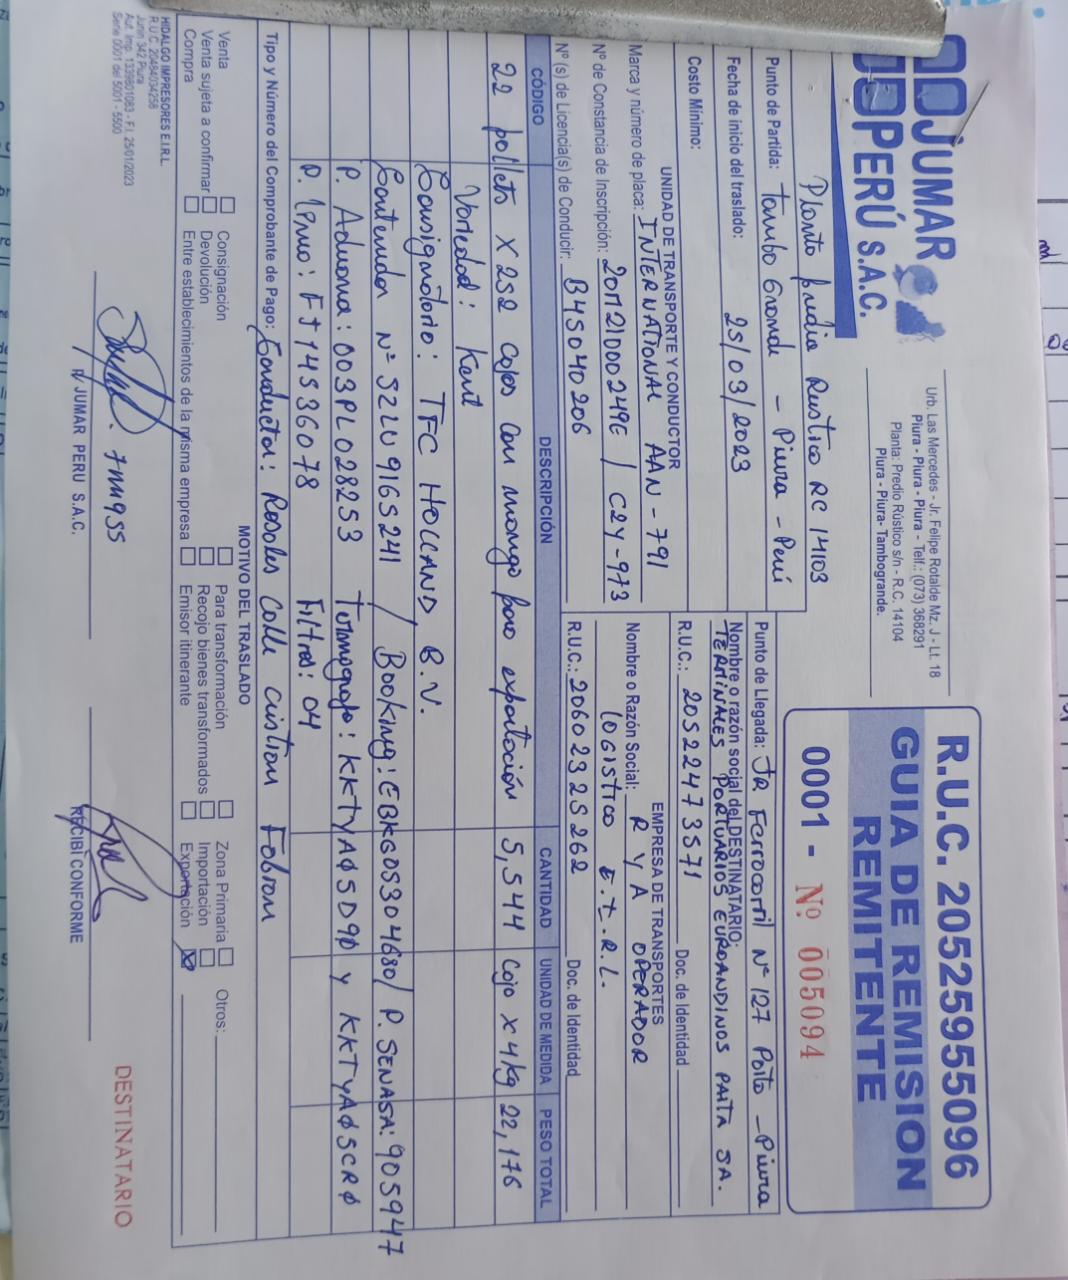 JUMAR
PERÚ S.A.C.
Urb. Las Mercedes - Jr. Felipe Rotalde Mz. J - Lt. 18
Piura - Piura - Piura - Telf.: (073) 368291
Planta: Predio Rústico s/n - R.C. 14104
Piura - Piura-Tambogrande.
R.U.C. 20525955096
GUIA DE REMISION
REMITENTE
0001 - Nº 005094
Planta Predio Rustico RC 14103
Punto de Partida: Tambo Grande - Piura - Perú
Fecha de inicio del traslado: 25/03/2023
Costo Mínimo:
Punto de Llegada: JR Ferrocarril N° 127 Paita - Piura
Nombre o razón social del DESTINATARIO:
TERMINALES PORTUARIOS EUROANDINOS PAITA SA.
R.U.C.: 20522473571 Doc. de Identidad
UNIDAD DE TRANSPORTE Y CONDUCTOR
Marca y número de placa: INTERNATIONAL AAN-791
Nº de Constancia de Inscripción: 20M21000249E / C2Y-973
Nº (s) de Licencia(s) de Conducir: B45040206
EMPRESA DE TRANSPORTES
Nombre o Razón Social: R Y A OPERADOR
LOGISTICO E.I.R.L.
R.U.C.: 20602325262 Doc. de Identidad
CÓDIGO DESCRIPCIÓN CANTIDAD UNIDAD DE MEDIDA PESO TOTAL
22 pallets x 252 cajas con mango para exportación 5,544 Caja x 4kg 22,176
Variedad: Kent
Consignatorio: TFC HOLLAND B.V.
Contenedor N° SZLU9165241 / Booking: EBKG05304680 / P. SENASA: 905947
P. Aduana: 003PL028253 Termografo: KKTYAØ5D9Ø y KKTYAØ5CRØ
P. Linea: FJ14536078 Filtros: 04
Tipo y Número del Comprobante de Pago: Conductor: Rosales Calle Cristian Fabian
MOTIVO DEL TRASLADO
Venta Consignación Para transformación Zona Primaria Otros:
Venta sujeta a confirmar Devolución Recojo bienes transformados Importación
Compra Entre establecimientos de la misma empresa Emisor itinerante Exportación X
HIDALGO IMPRESORES E.I.R.L.
R.U.C. 20484034256
Junin 342 Piura
Aut. Imp. 1339801083 - F.I. 25/01/2023
Serie 0001 del 5001 - 5500
p/ JUMAR PERU S.A.C.
RECIBÍ CONFORME
DESTINATARIO